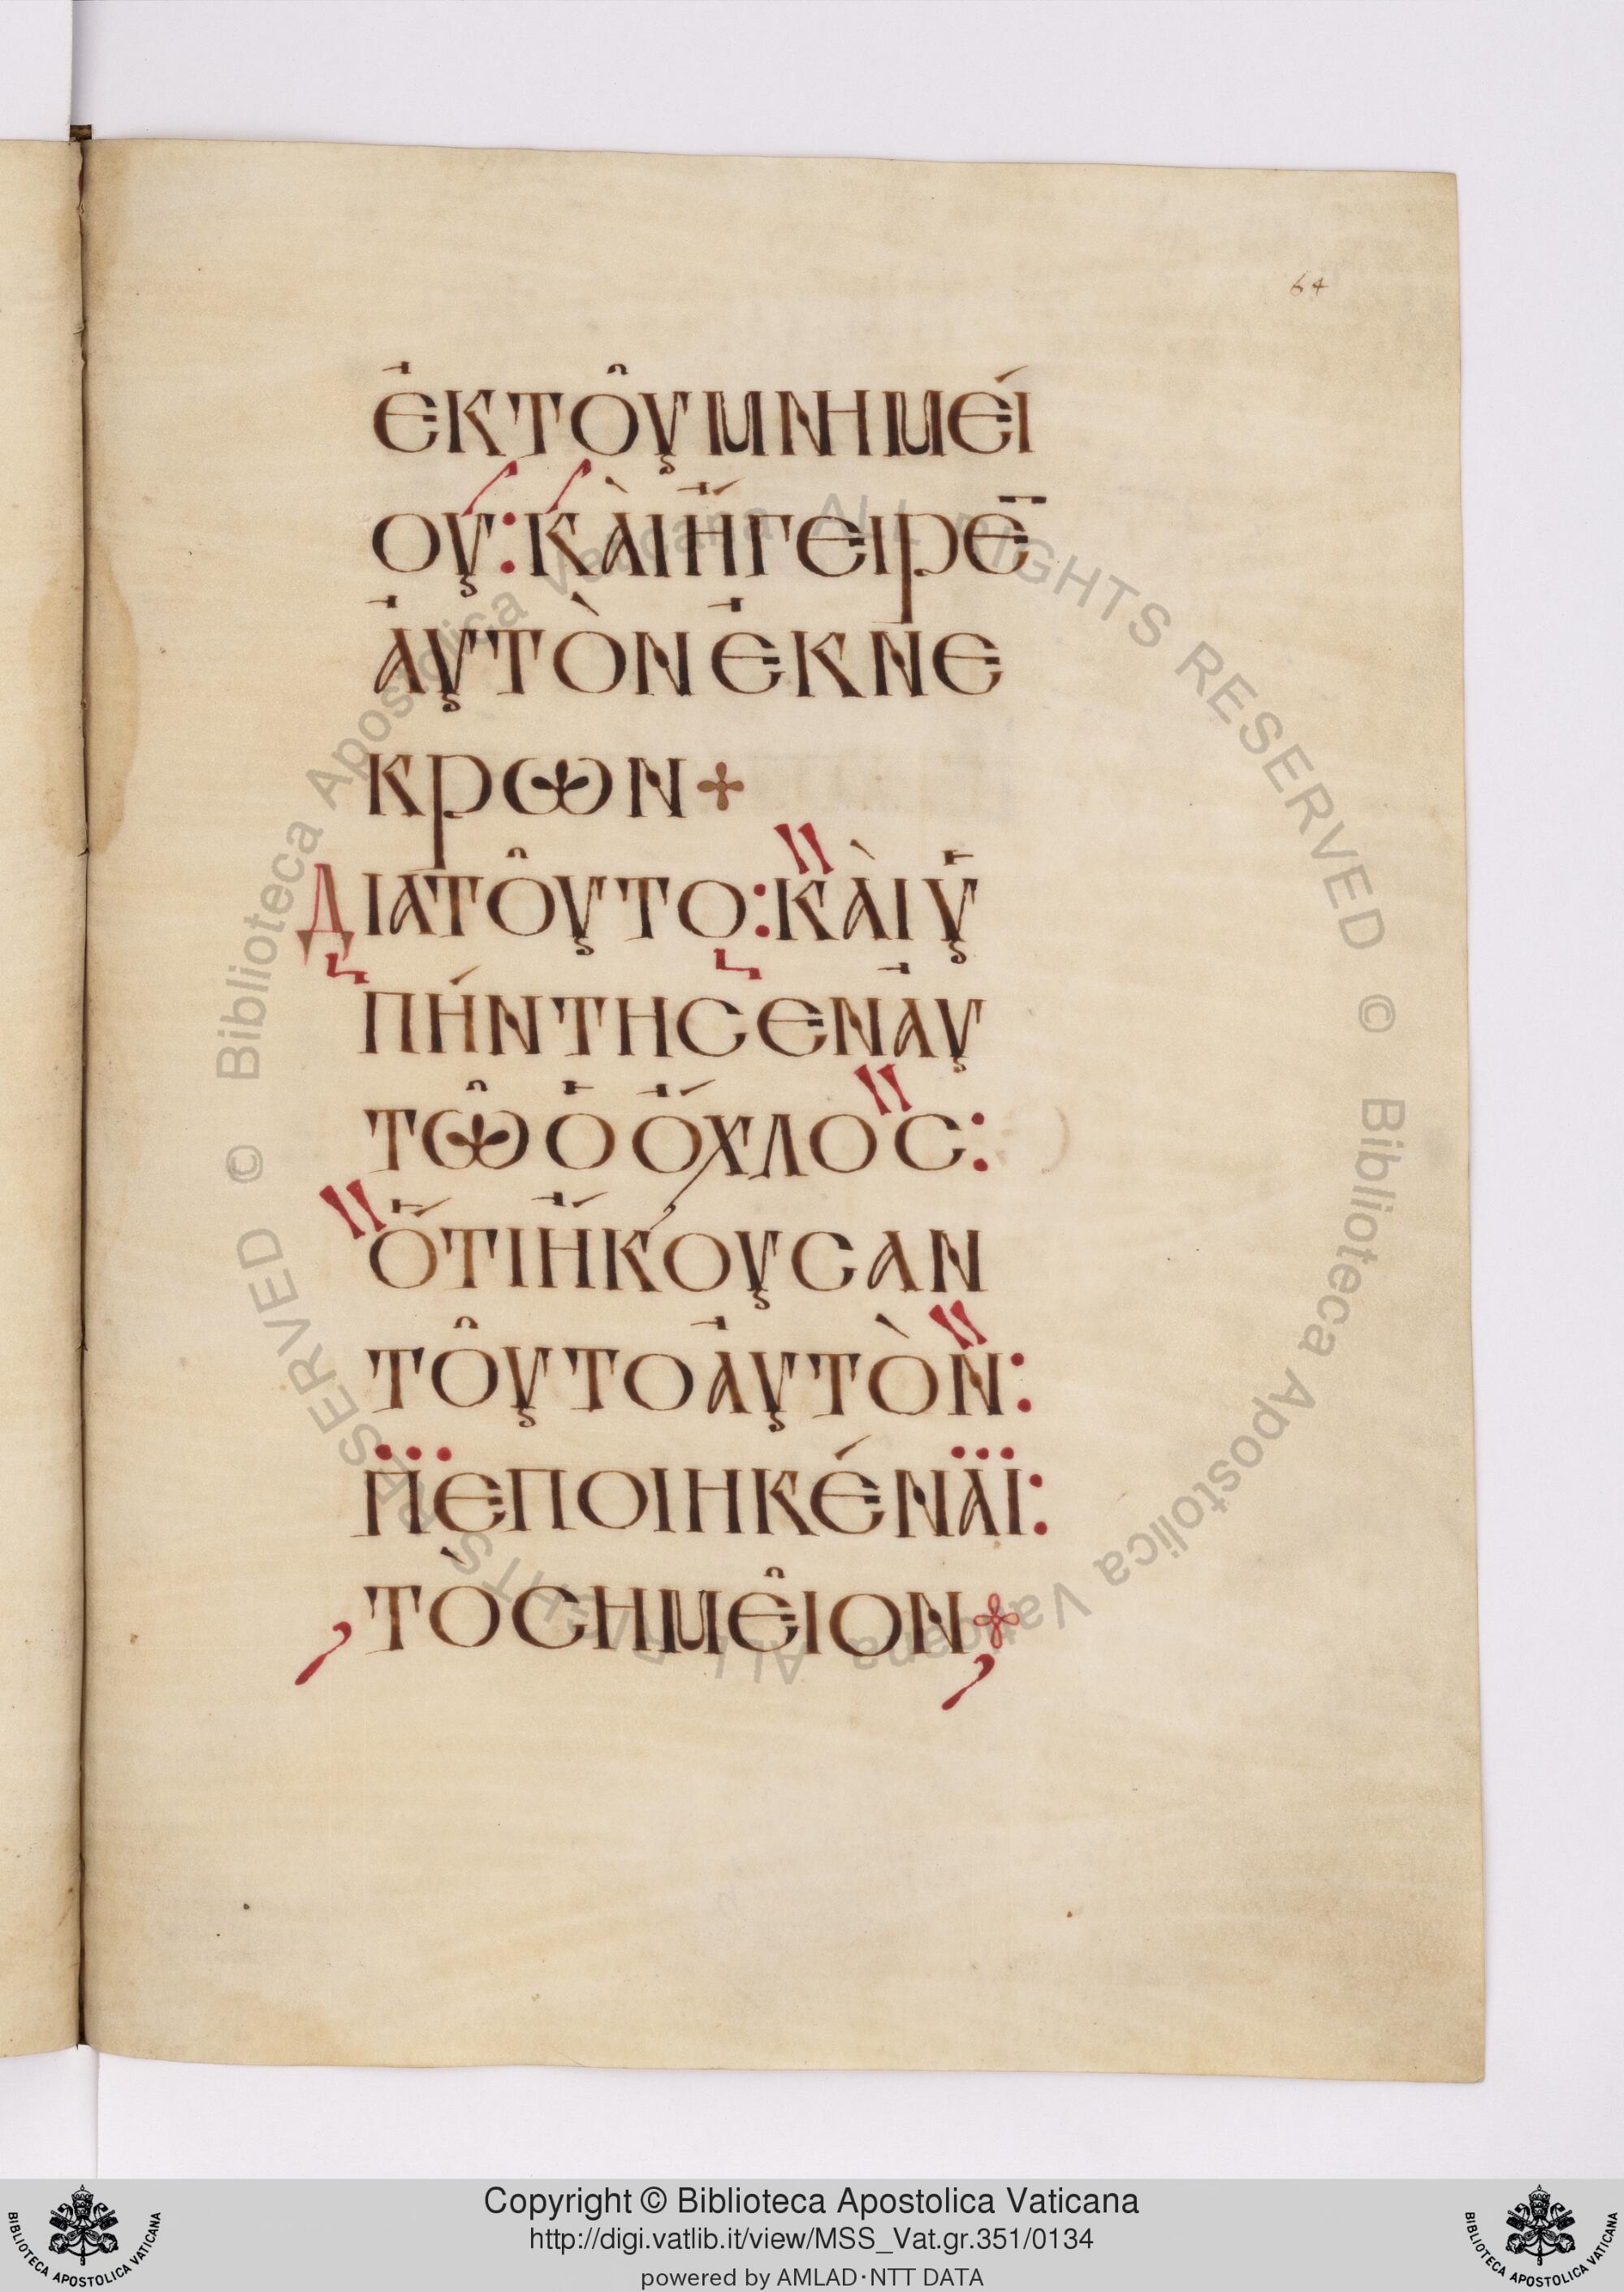 64
ἐκτοῦμνημέι
ου:κὰιἤγειρε̄
ἀυτὸνἐκνε
κρων+
Διατοῦτο:κὰιὑ
πήντησενἀυ
τῶὁὄχλος:
ὅτιἤκουσαν
τοῦτοἀυτὸν:
πεποιηκέναι:
τὸσημεῖον+
© Biblioteca Apostolica Vaticana ALL RIGHTS RESERVED © Biblioteca Apostolica Vaticana ALL RIGHTS RESERVED
Copyright © Biblioteca Apostolica Vaticana
http://digi.vatlib.it/view/MSS_Vat.gr.351/0134
powered by AMLAD·NTT DATA
BIBLIOTECA APOSTOLICA VATICANA
BIBLIOTECA APOSTOLICA VATICANA